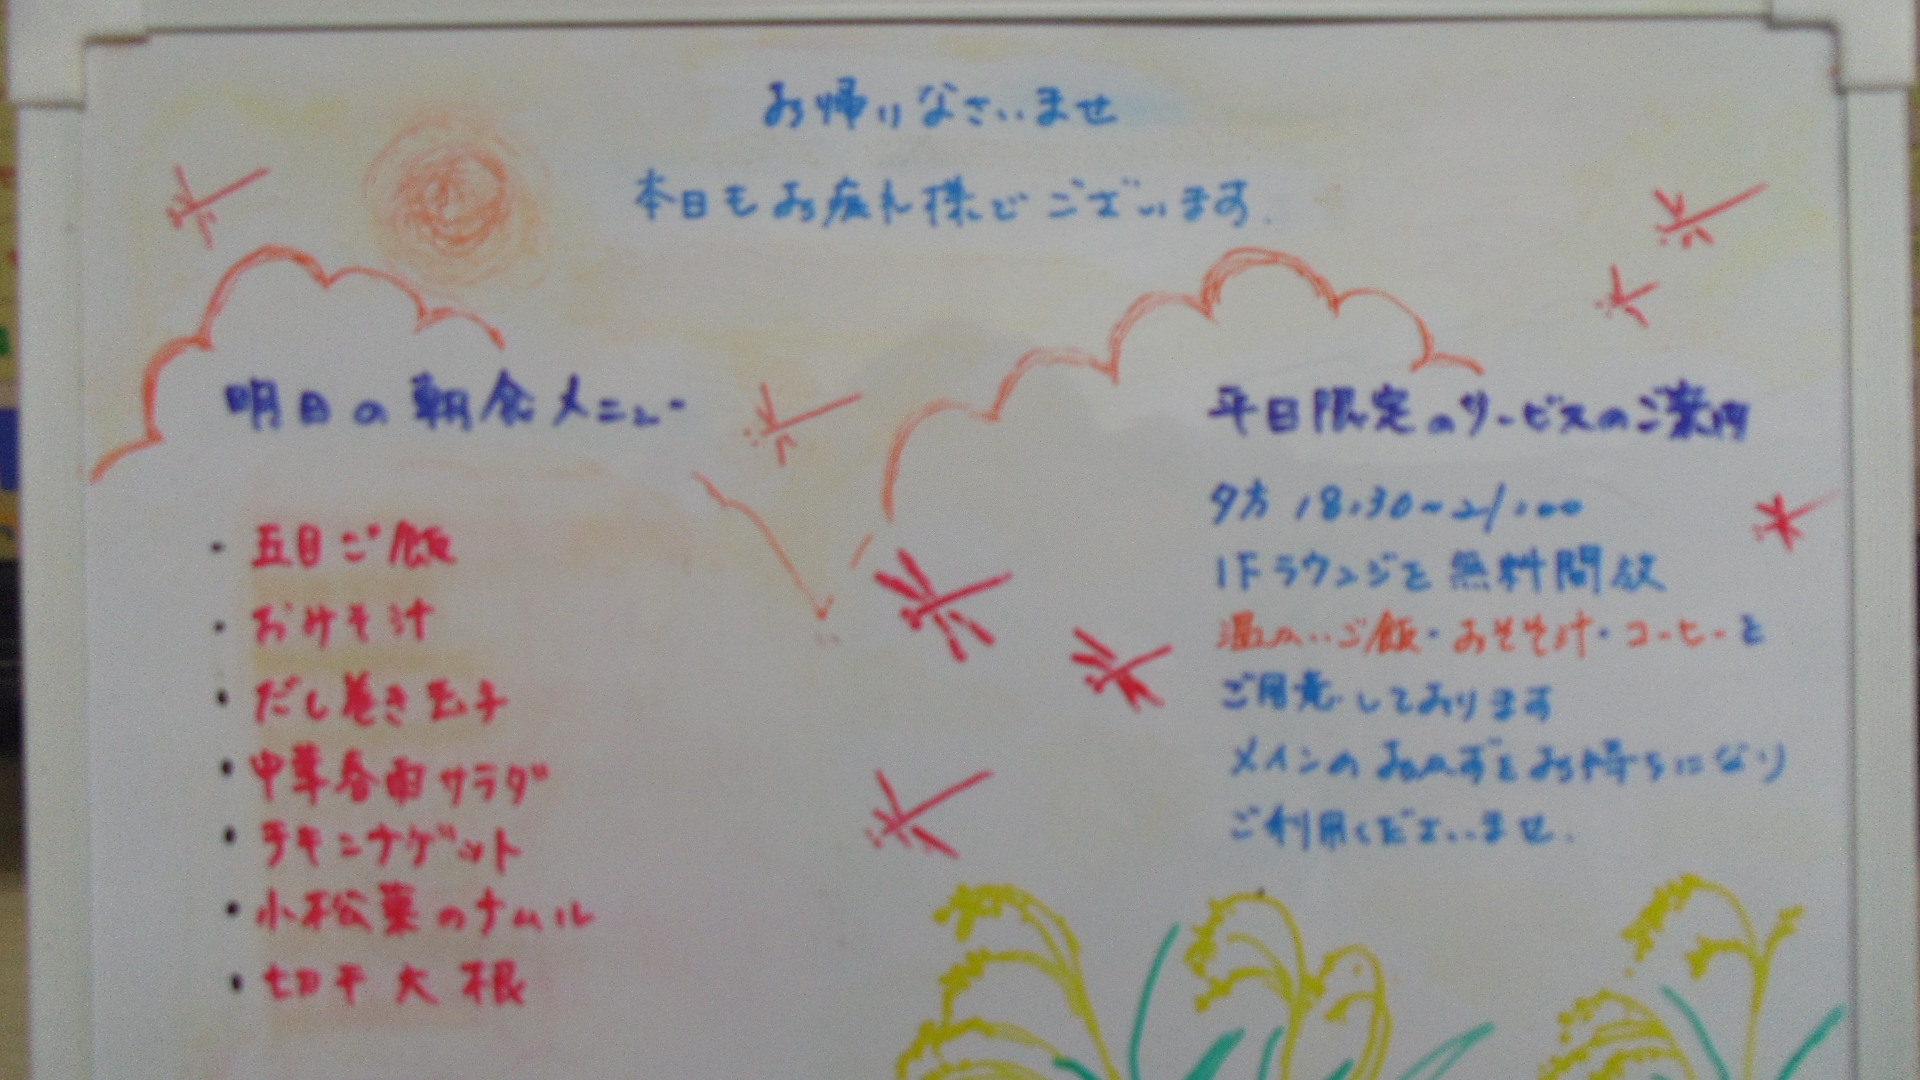 お帰りなさいませ
本日もお疲れ様でございます.
明日の朝食メニュー
・五目ご飯
・おみそ汁
・だし巻き玉子
・中華春雨サラダ
・チキンナゲット
・小松菜のナムル
・切干大根
平日限定のサービスのご案内
夕方 18:30~21:00
1Fラウンジを無料開放
温かいご飯・おみそ汁・コーヒーを
ご用意しております
メインのおかずをお持ちになり
ご利用くださいませ.